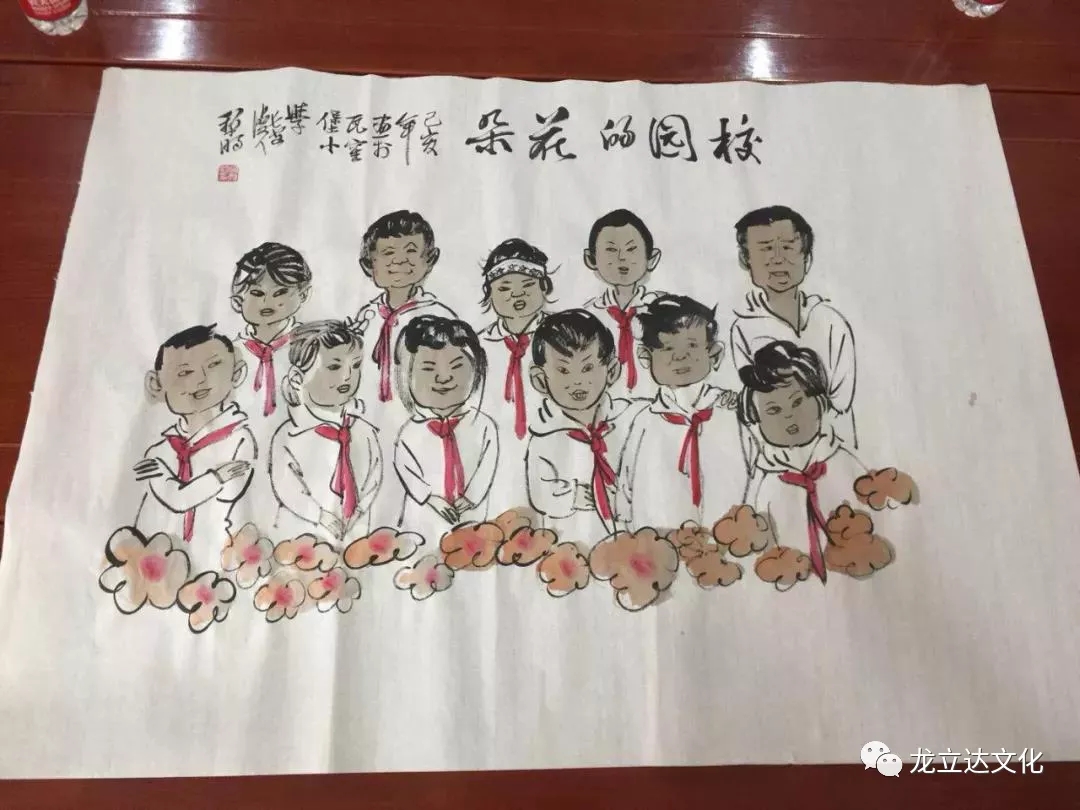 校园的花朵
己亥
年
画于
瓦窑
堡小
学
龙立达文化